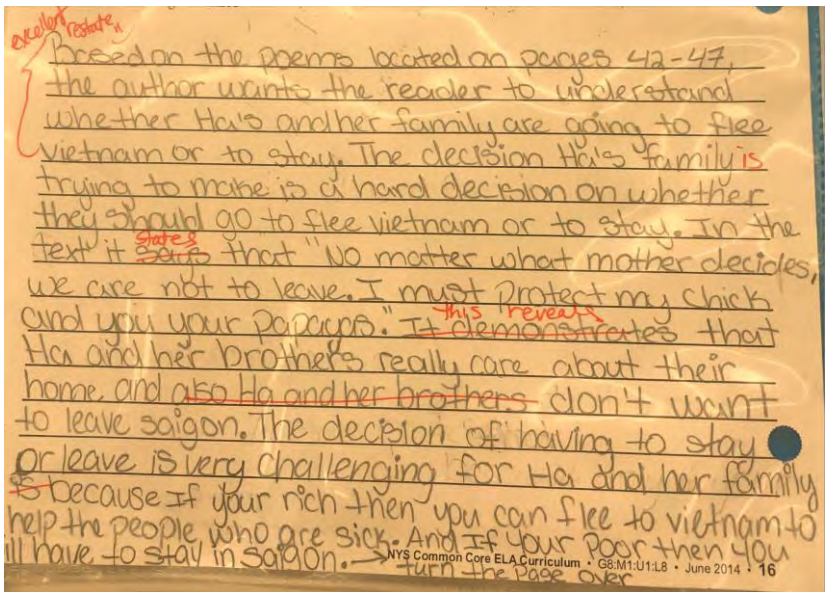 excellent restate
Based on the poems located on pages 42-47,
the author wants the reader to understand
whether Ha's and her family are going to flee
vietnam or to stay. The decision Ha's family is
trying to make is a hard decision on whether
they should go to flee vietnam or to stay. In the
states
text it says that "No matter what mother decides,
we are not to leave. I must protect my chick
and you your papayas." It demonstrates that
this reveals
Ha and her brothers really care about their
home and also Ha and her brothers don't want
to leave saigon. The decision of having to stay
or leave is very challenging for Ha and her family
is because If your rich then you can flee to vietnam to
help the people who are sick. And If your poor then you
ill have to stay in saigon. → turn the page over
NYS Common Core ELA Curriculum • G8:M1:U1:L8 • June 2014 • 16